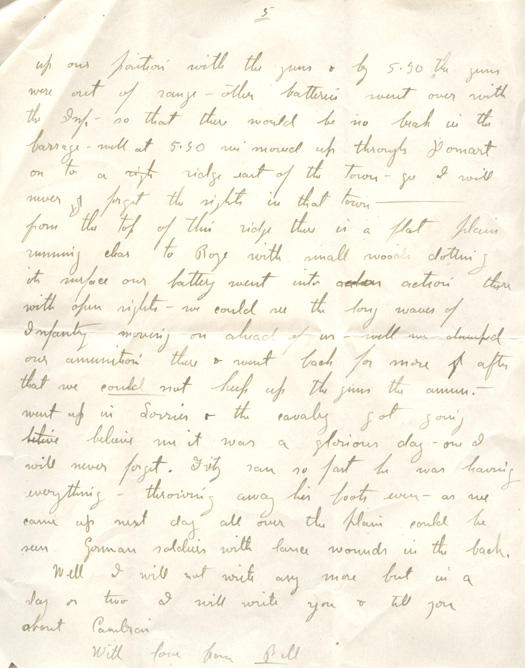 5
up our position with the guns & by 5.30 the guns
were out of range - other batteries went over with
the Inf - so that there would be no break in the
barrage - well at 5.30 we moved up through
on to a high ridge east of the town - go I will
never forget the sights in that town
from the top of this ridge there is a flat plain
running clear to Roye with small woods dotting
its surface our battery went into action there
with open sights - we could see the long waves of
Infantry moving on ahead of us - well we dumped
our amunition there & went back for more & after
that we could not keep up the guns the amun. -
went up in Lorries & the cavalry got going
believe me it was a glorious day - one I
will never forget. Fritz ran so fast he was leaving
everything - throwing away his boots even - as we
came up next day all over the plain could be
seen German soldiers with lance wounds in the back.
Well I will not write any more but in a
day or two I will write you & tell you
about Cambrai
With love from Bill